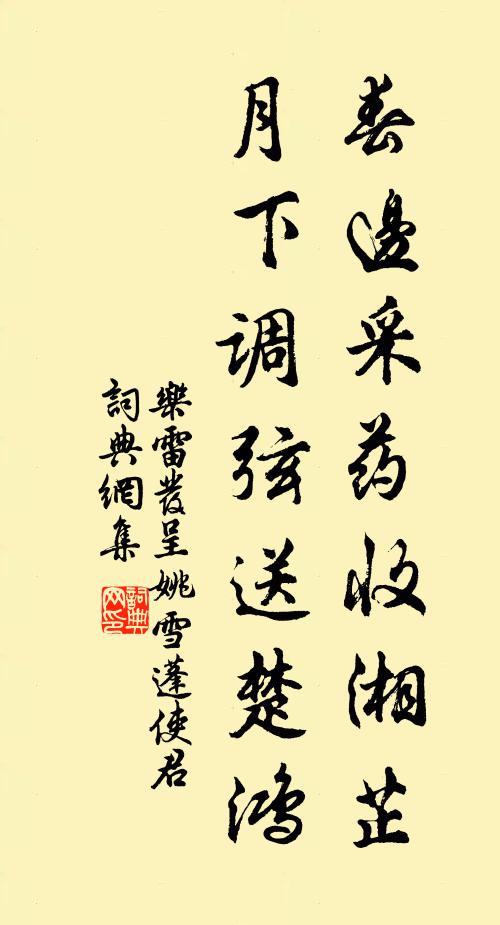 春邊采药收湘芷
月下调弦送楚鴻
樂雷發呈姚雪蓬使君
詞典網集
詞典網印